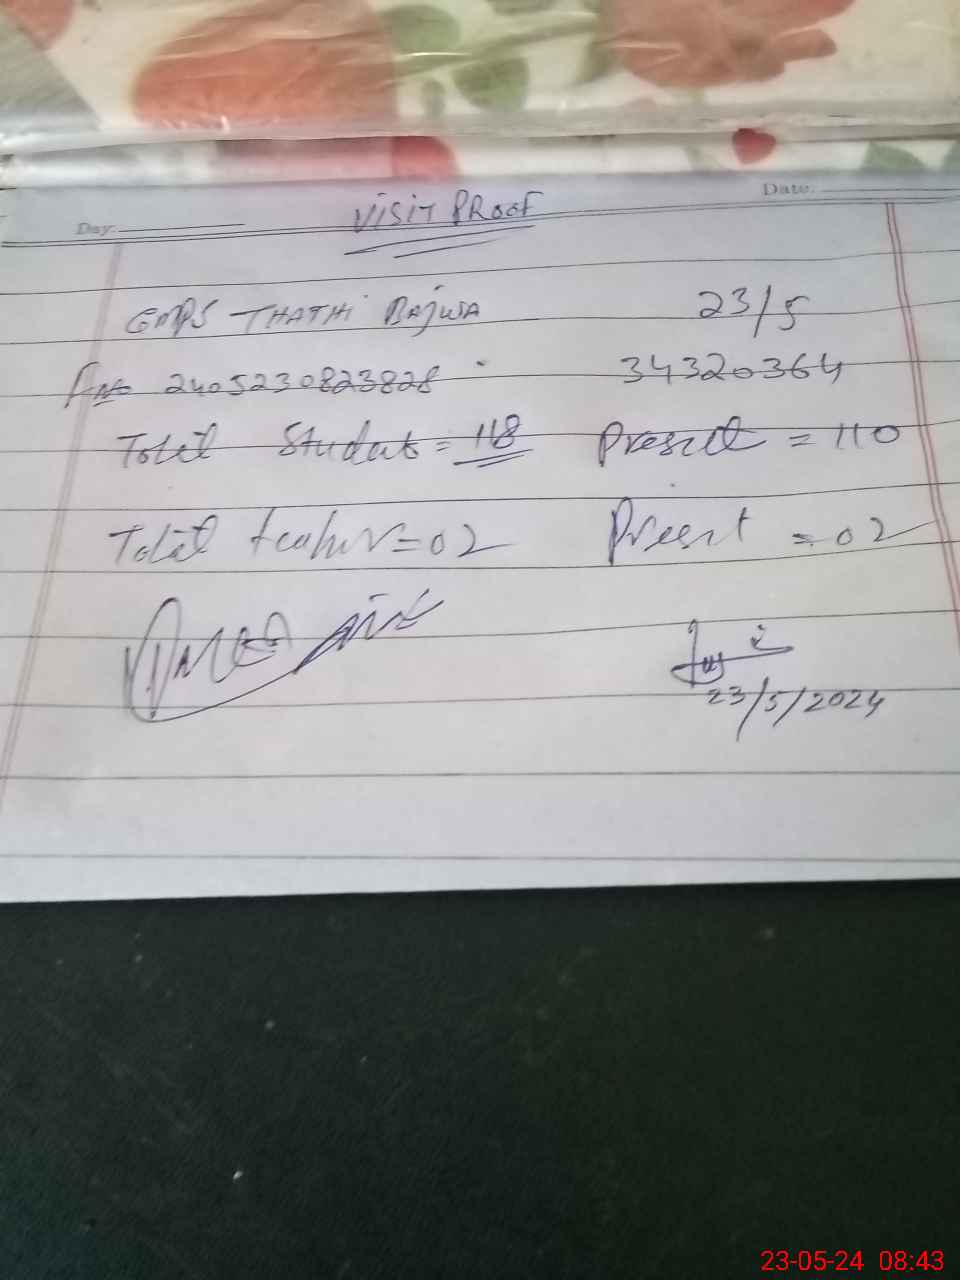 Day: Date:
VISIT PROOF
GMPS THATHI BAJWA 23/5
2405230823828 34320364
Totel Studats = 118 Present = 110
Totel teaher = 02 Preent = 02
23/5/2024
23-05-24 08:43